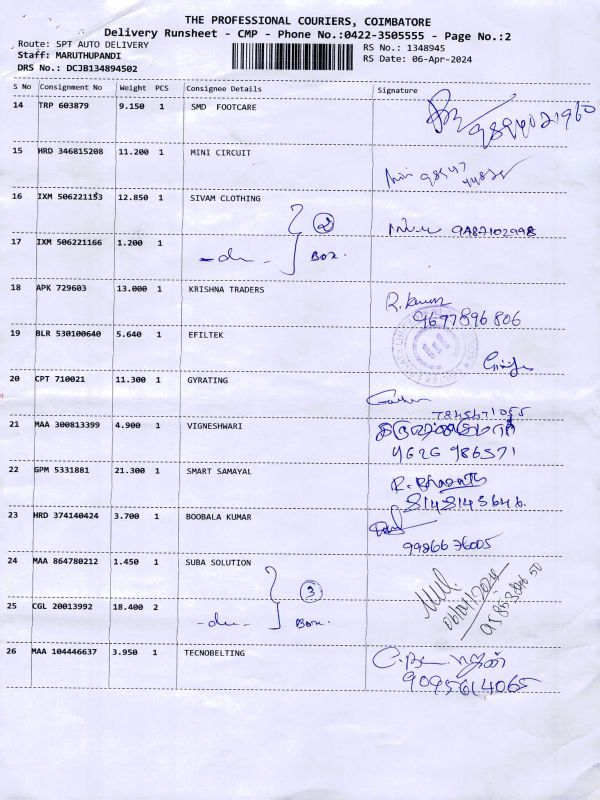 THE PROFESSIONAL COURIERS, COIMBATORE
Delivery Runsheet - CMP - Phone No.:0422-3505555 - Page No.:2
Route: SPT AUTO DELIVERY
RS No.: 1348945
Staff: MARUTHUPANDI
RS Date: 06-Apr-2024
DRS No.: DCJB134894502
S No Consignment No Weight PCS Consignee Details Signature
14 TRP 603879 9.150 1 SMD FOOTCARE
15 HRD 346815208 11.200 1 MINI CIRCUIT
16 IXM 506221153 12.850 1 SIVAM CLOTHING
2
9487102998
17 IXM 506221166 1.200 1 -do- Box.
18 APK 729603 13.000 1 KRISHNA TRADERS
R. Kumar
9677896806
19 BLR 530100640 5.640 1 EFILTEK
20 CPT 710021 11.300 1 GYRATING
21 MAA 300813399 4.900 1 VIGNESHWARI
9626986571
22 GPM 5331881 21.300 1 SMART SAMAYAL
R. Bharath
8148145646.
23 HRD 374140424 3.700 1 BOOBALA KUMAR
9986636005
24 MAA 864780212 1.450 1 SUBA SOLUTION
3
06/04/2024
25 CGL 20013992 18.400 2 -do- Box.
26 MAA 104446637 3.950 1 TECNOBELTING
9095614065